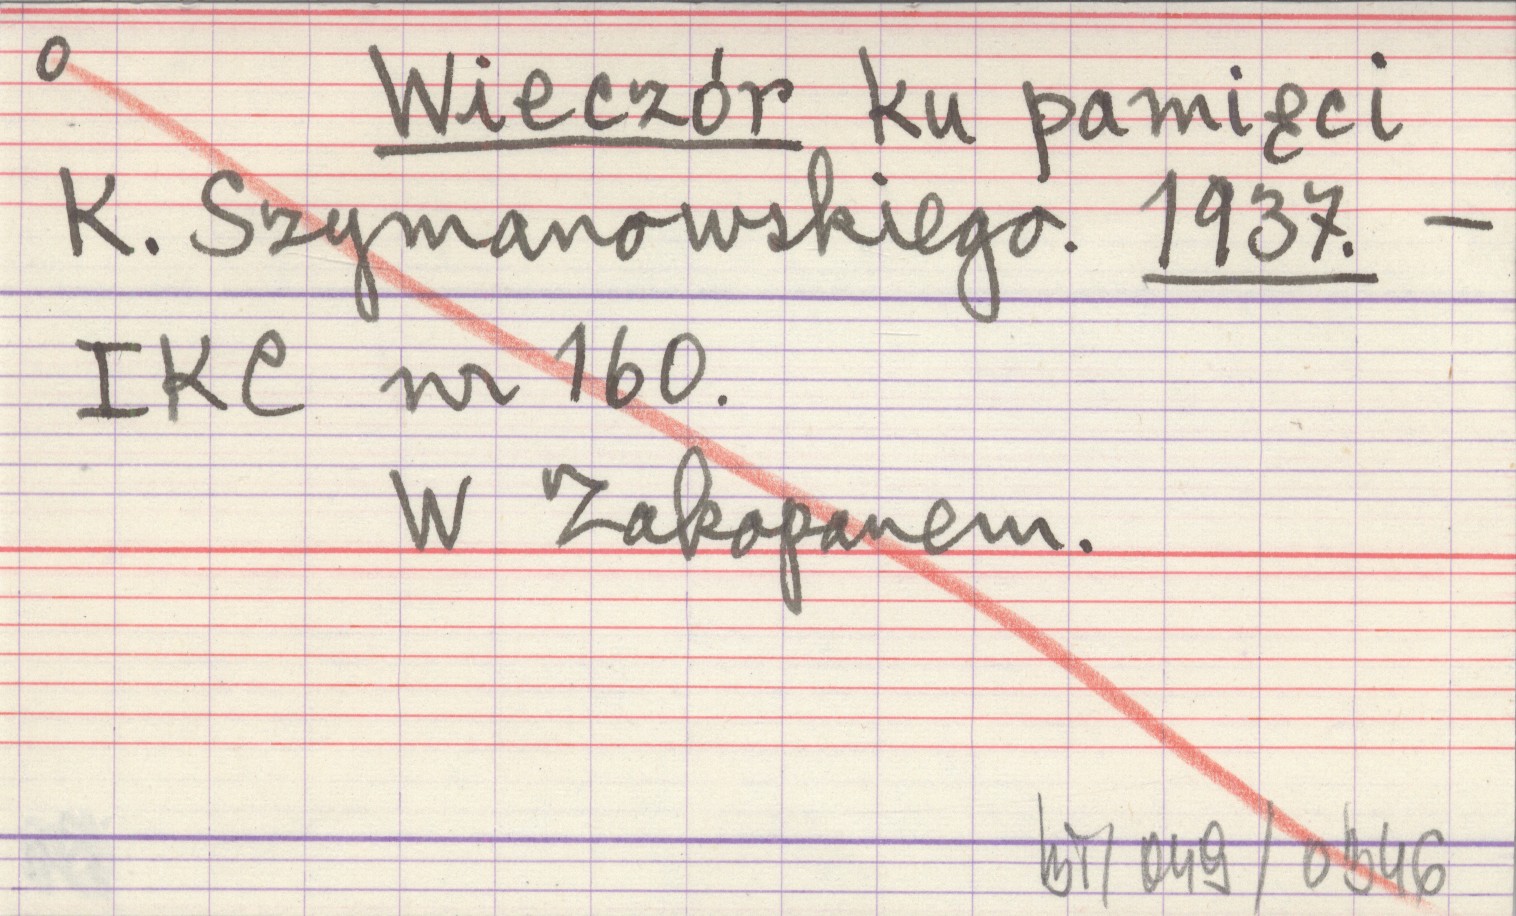 o
Wieczór ku pamięci
K. Szymanowskiego. 1937. –
IKC nr 160.
W Zakopanem.
049 / 0546